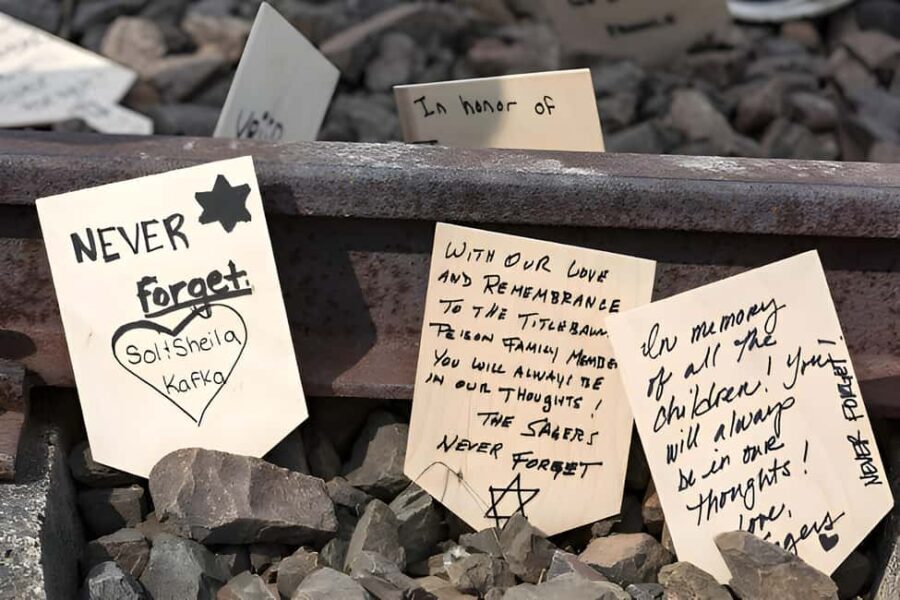 In honor of
NEVER
Forget.
Sol + Sheila
Kafka
WITH OUR LOVE
AND REMEMBRANCE
TO THE
FAMILY
YOU WILL ALWAYS BE
IN OUR THOUGHTS!
THE SAGERS
NEVER FORGET
In memory
of all the
children! You
will always
be in our
thoughts!
love,
NEVER FORGET!